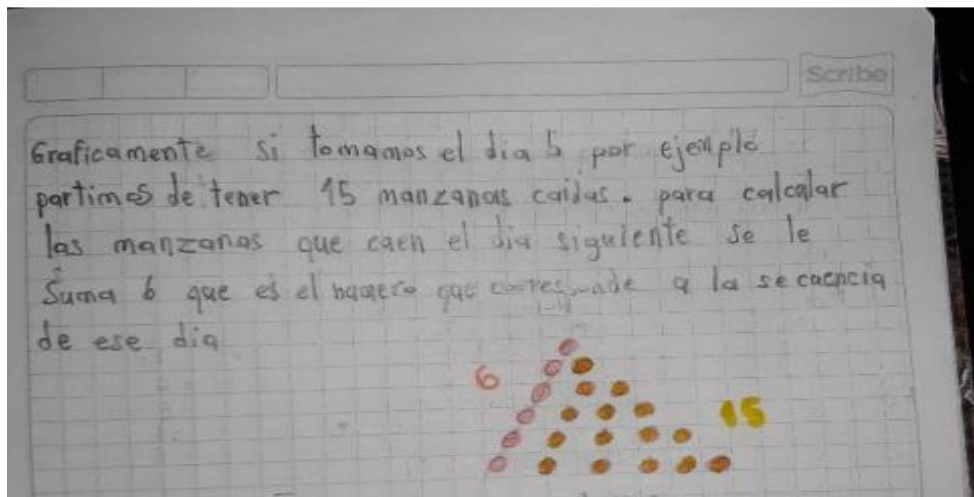 Scribe
Graficamente si tomamos el dia 5 por ejemplo
partimos de tener 15 manzanas caidas. para calcalar
las manzanas que caen el dia siguiente se le
Suma 6 que es el numero que corresponde a la secuencia
de ese dia
6
15